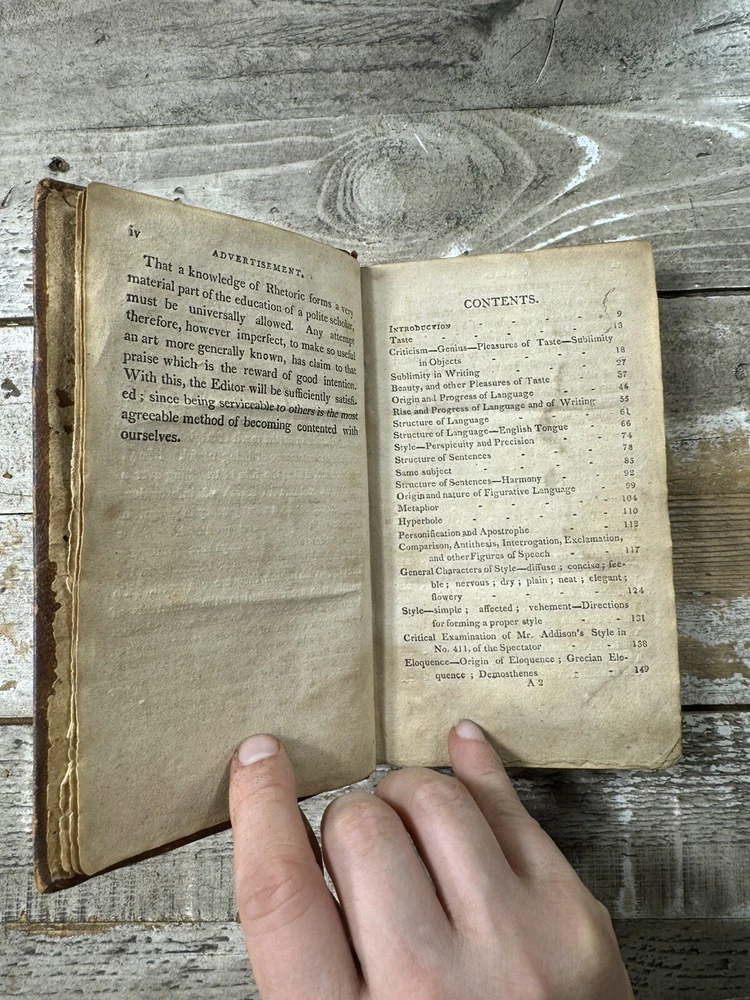 iv
ADVERTISEMENT.
That a knowledge of Rhetoric forms a very
material part of the education of a polite scholar,
must be universally allowed. Any attempt
therefore, however imperfect, to make so useful
an art more generally known, has claim to that
praise which is the reward of good intention.
With this, the Editor will be sufficiently satisfi-
ed; since being serviceable to others is the most
agreeable method of becoming contented with
ourselves.
CONTENTS.
INTRODUCTION - - - - - 9
Taste - - - - - 13
Criticism—Genius—Pleasures of Taste—Sublimity
in Objects - - - - 18
Sublimity in Writing - - - - 27
Beauty, and other Pleasures of Taste - - 37
Origin and Progress of Language - - 46
Rise and Progress of Language and of Writing 55
Structure of Language - - - 61
Structure of Language—English Tongue - 66
Style—Perspicuity and Precision - - 74
Structure of Sentences - - - 78
Same subject - - - - 85
Structure of Sentences—Harmony - - 92
Origin and nature of Figurative Language - 99
Metaphor - - - - - 104
Hyperbole - - - - - 110
Personification and Apostrophe - - 112
Comparison, Antithesis, Interrogation, Exclamation,
and other Figures of Speech - - 117
General Characters of Style—diffuse; concise; fee-
ble; nervous; dry; plain; neat; elegant;
flowery - - - - - 124
Style—simple; affected; vehement—Directions
for forming a proper style - - 131
Critical Examination of Mr. Addison's Style in
No. 411, of the Spectator - - 138
Eloquence—Origin of Eloquence; Grecian Elo-
quence; Demosthenes - - 149
A 2